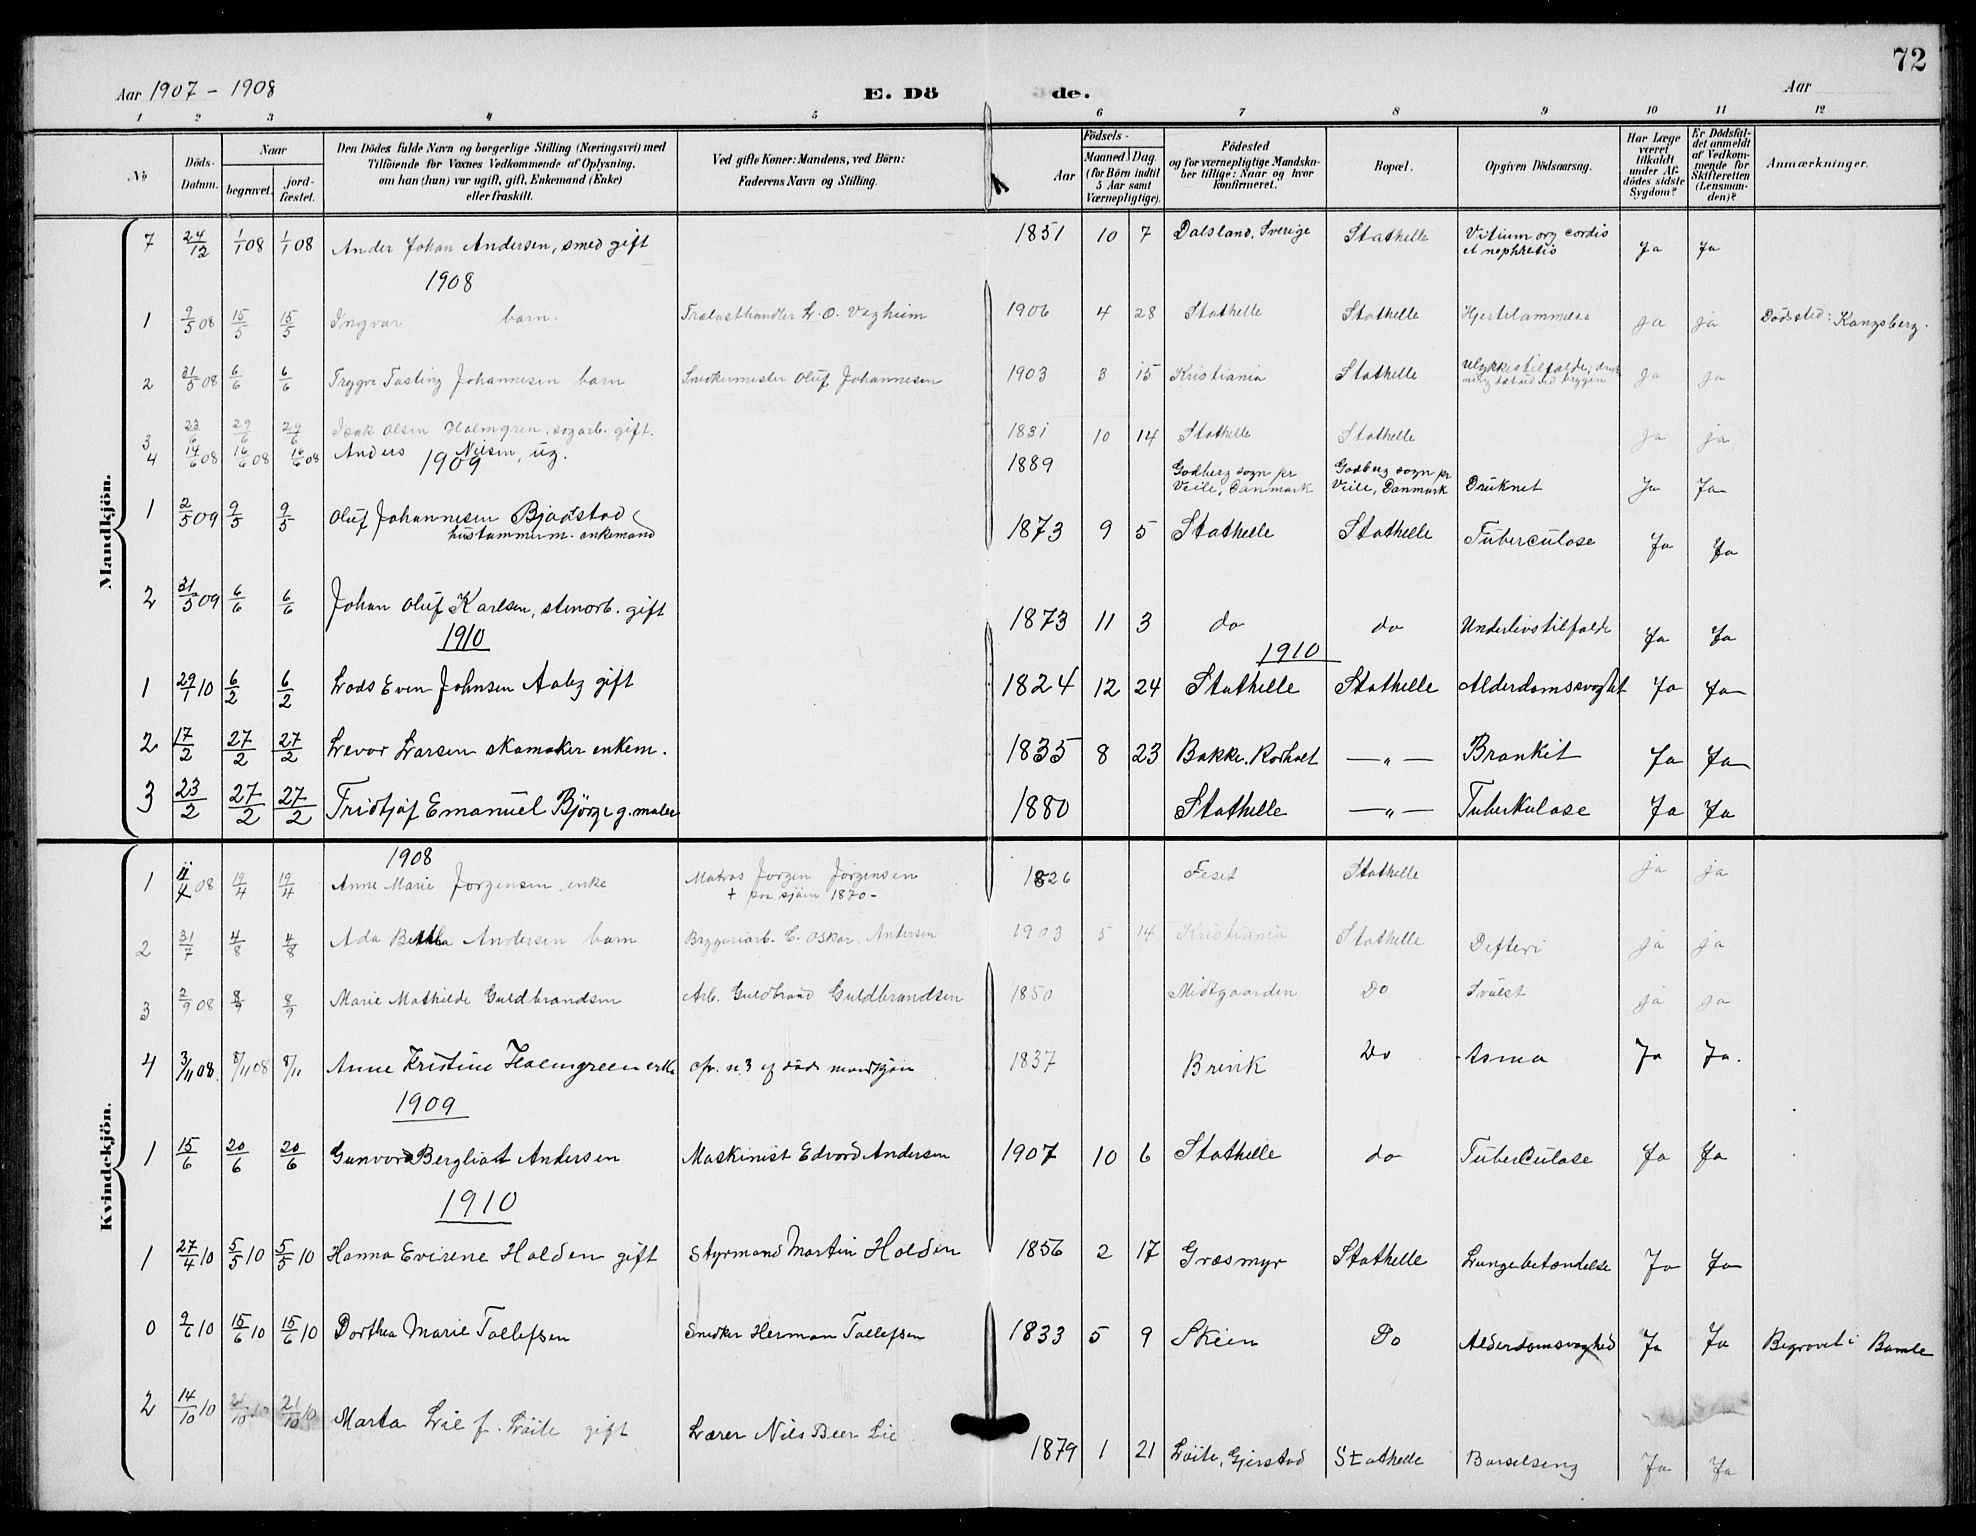 72
Aar 1907 - 1908 E. Dö de. Aar
1 2 3 4 5 6 7 8 9 10 11 12
No
Döds-Datum.
Naar
begravet. jord-fæstet.
Den Dödes fulde Navn og borgerlige Stilling (Næringsvei) med
Tilföiende for Voxnes Vedkommende af Oplysning,
om han (hun) var ugift, gift, Enkemand (Enke)
eller fraskilt.
Ved gifte Koner: Mandens, ved Börn:
Faderens Navn og Stilling.
Födsels-
Aar Maaned. Dag.
(for Börn indtil
5 Aar samt
Værnepligtige).
Födested
og for værnepligtige Mandska-
ber tillige: Naar og hvor
konfirmeret.
Bopæl.
Opgiven Dödsaarsag.
Har Læge
været
tilkaldt
under Af-
dödes sidste
Sygdom?
Er Dödsfal-
det anmeldt
af Vedkom-
mende for
Skifteretten
(Lensman-
den)?
Anmærkninger.
Mandkjön.
7 24/12 1/1 08 1/1 08 Ander Johan Andersen, smed gift 1851 10 7 Dalsland, Sverige Stathelle Vitium org cordis et nephretis Ja Ja
1908
1 9/5 08 15/5 15/5 Ingvar barn. Trælasthandler L. O. Vegheim 1906 4 28 Stathelle Stathelle Hjertelammelse ja ja Dödssted: Kongsberg.
2 31/5 08 6/6 6/6 Trygve Tasting Johannesen barn Snedkermester Oluf Johannesen 1903 3 15 Kristiania Stathelle Ulykkestilfælde, ved bryggen ja ja
3 23/6 29/6 29/6 Isak Olsen Holmgren. gift. 1831 10 14 Stathelle Stathelle ja ja
4 14/6 08 16/6 08 16/6 08 Anders Nilsen, ug. 1889 Godberg sogn pr Veile, Danmark Godberg sogn pr Veile, Danmark Druknet Ja Ja
1909
1 2/5 09 9/5 9/5 Oluf Johannesen Bjodstad hustømmerm. enkemand 1873 9 5 Stathelle Stathelle Tuberculose Ja Ja
2 31/5 09 6/6 6/6 Johan Oluf Karlsen, stenarb. gift 1873 11 3 do do Underlivstilfælde Ja Ja
1910 1910
1 29/1 10 6/2 6/2 Lods Even Johnsen Aaby gift 1824 12 24 Stathelle Stathelle Alderdomssvaghet Ja Ja
2 17/2 27/2 27/2 Levor Larsen skomaker enkem. 1835 8 23 Bakke. Rorholt — „ — Bronkit Ja Ja
3 23/2 27/2 27/2 Fridtjof Emanuel Björge g. maler 1880 Stathelle — „ — Tuberkulose Ja Ja
Kvindekjön.
1908
1 11/4 08 19/4 19/4 Anne Marie Jørgensen. enke Matros Jørgen Jørgensen + paa sjøen 1870- 1826 Feset Stathelle ja ja
2 31/7 4/8 4/8 Ada Bertha Andersen barn Bryggeriarb. C. Oskar Andersen 1903 5 14 Kristiania Stathelle Difteri ja ja
3 2/9 08 8/9 8/9 Marie Mathilde Guldbrandsen Arb. Guldbrand Guldbrandsen 1850 Midtgaarden Do Svulst ja ja
4 3/11 08. 8/11 08 8/11 Anne Kristine Holmgreen enke cfr. n. 3 af døde mandkjøn 1837 Brevik Do Asma Ja Ja.
1909
1 15/6 20/6 20/6 Gunvord Bergliot Andersen Maskinist Edvard Andersen 1907 10 6 Stathelle do Tuberculose Ja Ja
1910
1 27/4 10 5/5 10 5/5 10 Hanna Evirene Halden gift Styrmand Martin Halden 1856 2 17 Græsmyr Stathelle Lungebetændelse Ja Ja
0 9/6 10 15/6 10 15/6 10 Dorthea Marie Tollefsen Snedker Herman Tollefsen 1833 5 9 Skien Do Alderdomssvaghed Ja Ja Begravet i Bamle
2 14/10 10 21/10 10 21/10 10 Marta Lie f. Löite gift Lærer Nils Beer Lie 1879 1 21 Löite, Gjerstad Stathelle Barselseng Ja Ja